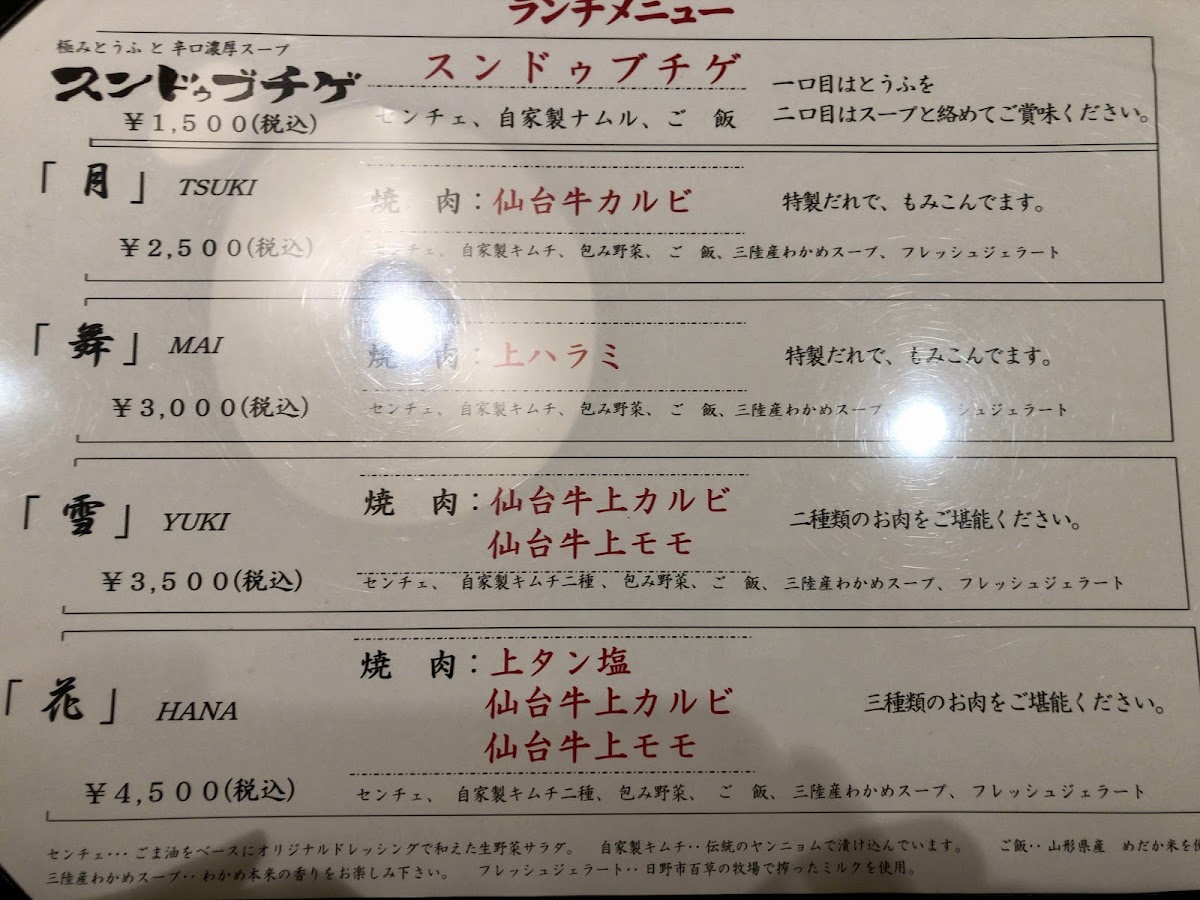 ランチメニュー
極みとうふ と 辛口濃厚スープ
スンドゥブチゲ
￥1,500(税込)
スンドゥブチゲ
センチェ、自家製ナムル、ご　飯
一口目はとうふを
二口目はスープと絡めてご賞味ください。
「月」 TSUKI
￥2,500(税込)
焼　肉：仙台牛カルビ
特製だれで、もみこんでます。
センチェ、 自家製キムチ、 包み野菜、 ご　飯、三陸産わかめスープ、 フレッシュジェラート
「舞」 MAI
￥3,000(税込)
焼　肉：上ハラミ
特製だれで、もみこんでます。
センチェ、 自家製キムチ、 包み野菜、 ご　飯、三陸産わかめスープ、 シュジェラート
「雪」 YUKI
￥3,500(税込)
焼　肉：仙台牛上カルビ
仙台牛上モモ
二種類のお肉をご堪能ください。
センチェ、 自家製キムチ二種 、包み野菜、ご　飯、 三陸産わかめスープ、 フレッシュジェラート
「花」 HANA
￥4,500(税込)
焼　肉：上タン塩
仙台牛上カルビ
仙台牛上モモ
三種類のお肉をご堪能ください。
センチェ、 自家製キムチ二種、 包み野菜、 ご　飯、 三陸産わかめスープ、 フレッシュジェラート
センチェ・・・ごま油をベースにオリジナルドレッシングで和えた生野菜サラダ。　自家製キムチ・・伝統のヤンニョムで漬け込んでいます。　ご飯・・山形県産　めだか米を
三陸産わかめスープ・・わかめ本来の香りをお楽しみ下さい。　フレッシュジェラート・・日野市百草の牧場で搾ったミルクを使用。